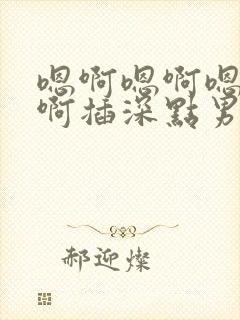 嗯啊嗯啊嗯
啊插深點男
郝迎燦